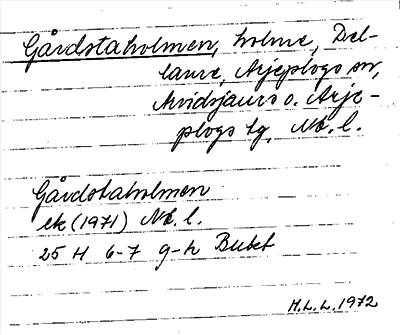 Gårdstaholmen, holme, Del-
laure, Arjeplogs sn,
Arvidsjaurs o. Arje-
plogs tg, Nb. l.
Gårdstaholmen
ek (1971) Nb. l.
25 H 6-7 g-h Butet
M.L.L. 1972